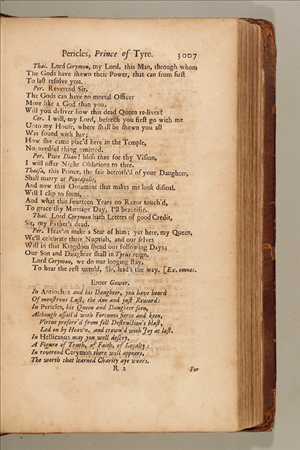 Pericles, Prince of Tyre. 3007
Thai. Lord Cerymon, my Lord, this Man, through whom
The Gods have shewn their Power, that can from first
To last resolve you.
Per. Reverend Sir,
The Gods can have no mortal Officer
More like a God than you,
Will you deliver how this dead Queen re-lives?
Cer. I will, my Lord, beseech you first go with me
Unto my House, where shall be shewn you all
Was found with her;
How she came plac'd here in the Temple,
No needful thing omitted.
Per. Pure Dian! bless thee for thy Vision,
I will offer Night Oblations to thee.
Thaisa, this Prince, the fair betroth'd of your Daughter,
Shall marry at Pentapolis,
And now this Ornament that makes me look dismal,
Will I clip to form,
And what this fourteen Years no Razor touch'd,
To grace thy Marriage Day, I'll beautifie.
Thai. Lord Cerymon hath Letters of good Credit,
Sir, my Father's dead.
Per. Heav'n make a Star of him; yet here, my Queen,
We'll celebrate their Nuptials, and our selves
Will in that Kingdom spend our following Days;
Our Son and Daughter shall in Tyrus reign.
Lord Cerymon, we do our longing stay,
To hear the rest untold, Sir, lead's the way. [Ex. omnes.
Enter Gower.
In Antiochus and his Daughter, you have heard
Of monstrous Lust, the due and just Reward:
In Pericles, his Queen and Daughter seen,
Although assail'd with Fortunes fierce and keen,
Vertue preserv'd from fell Destruction's blast,
Led on by Heav'n, and crown'd with Joy at last.
In Hellicanus may you well descry,
A Figure of Truth, of Faith, of Loyalty:
In reverend Cerymon there well appears,
The worth that learned Charity aye wears.
R 2 For